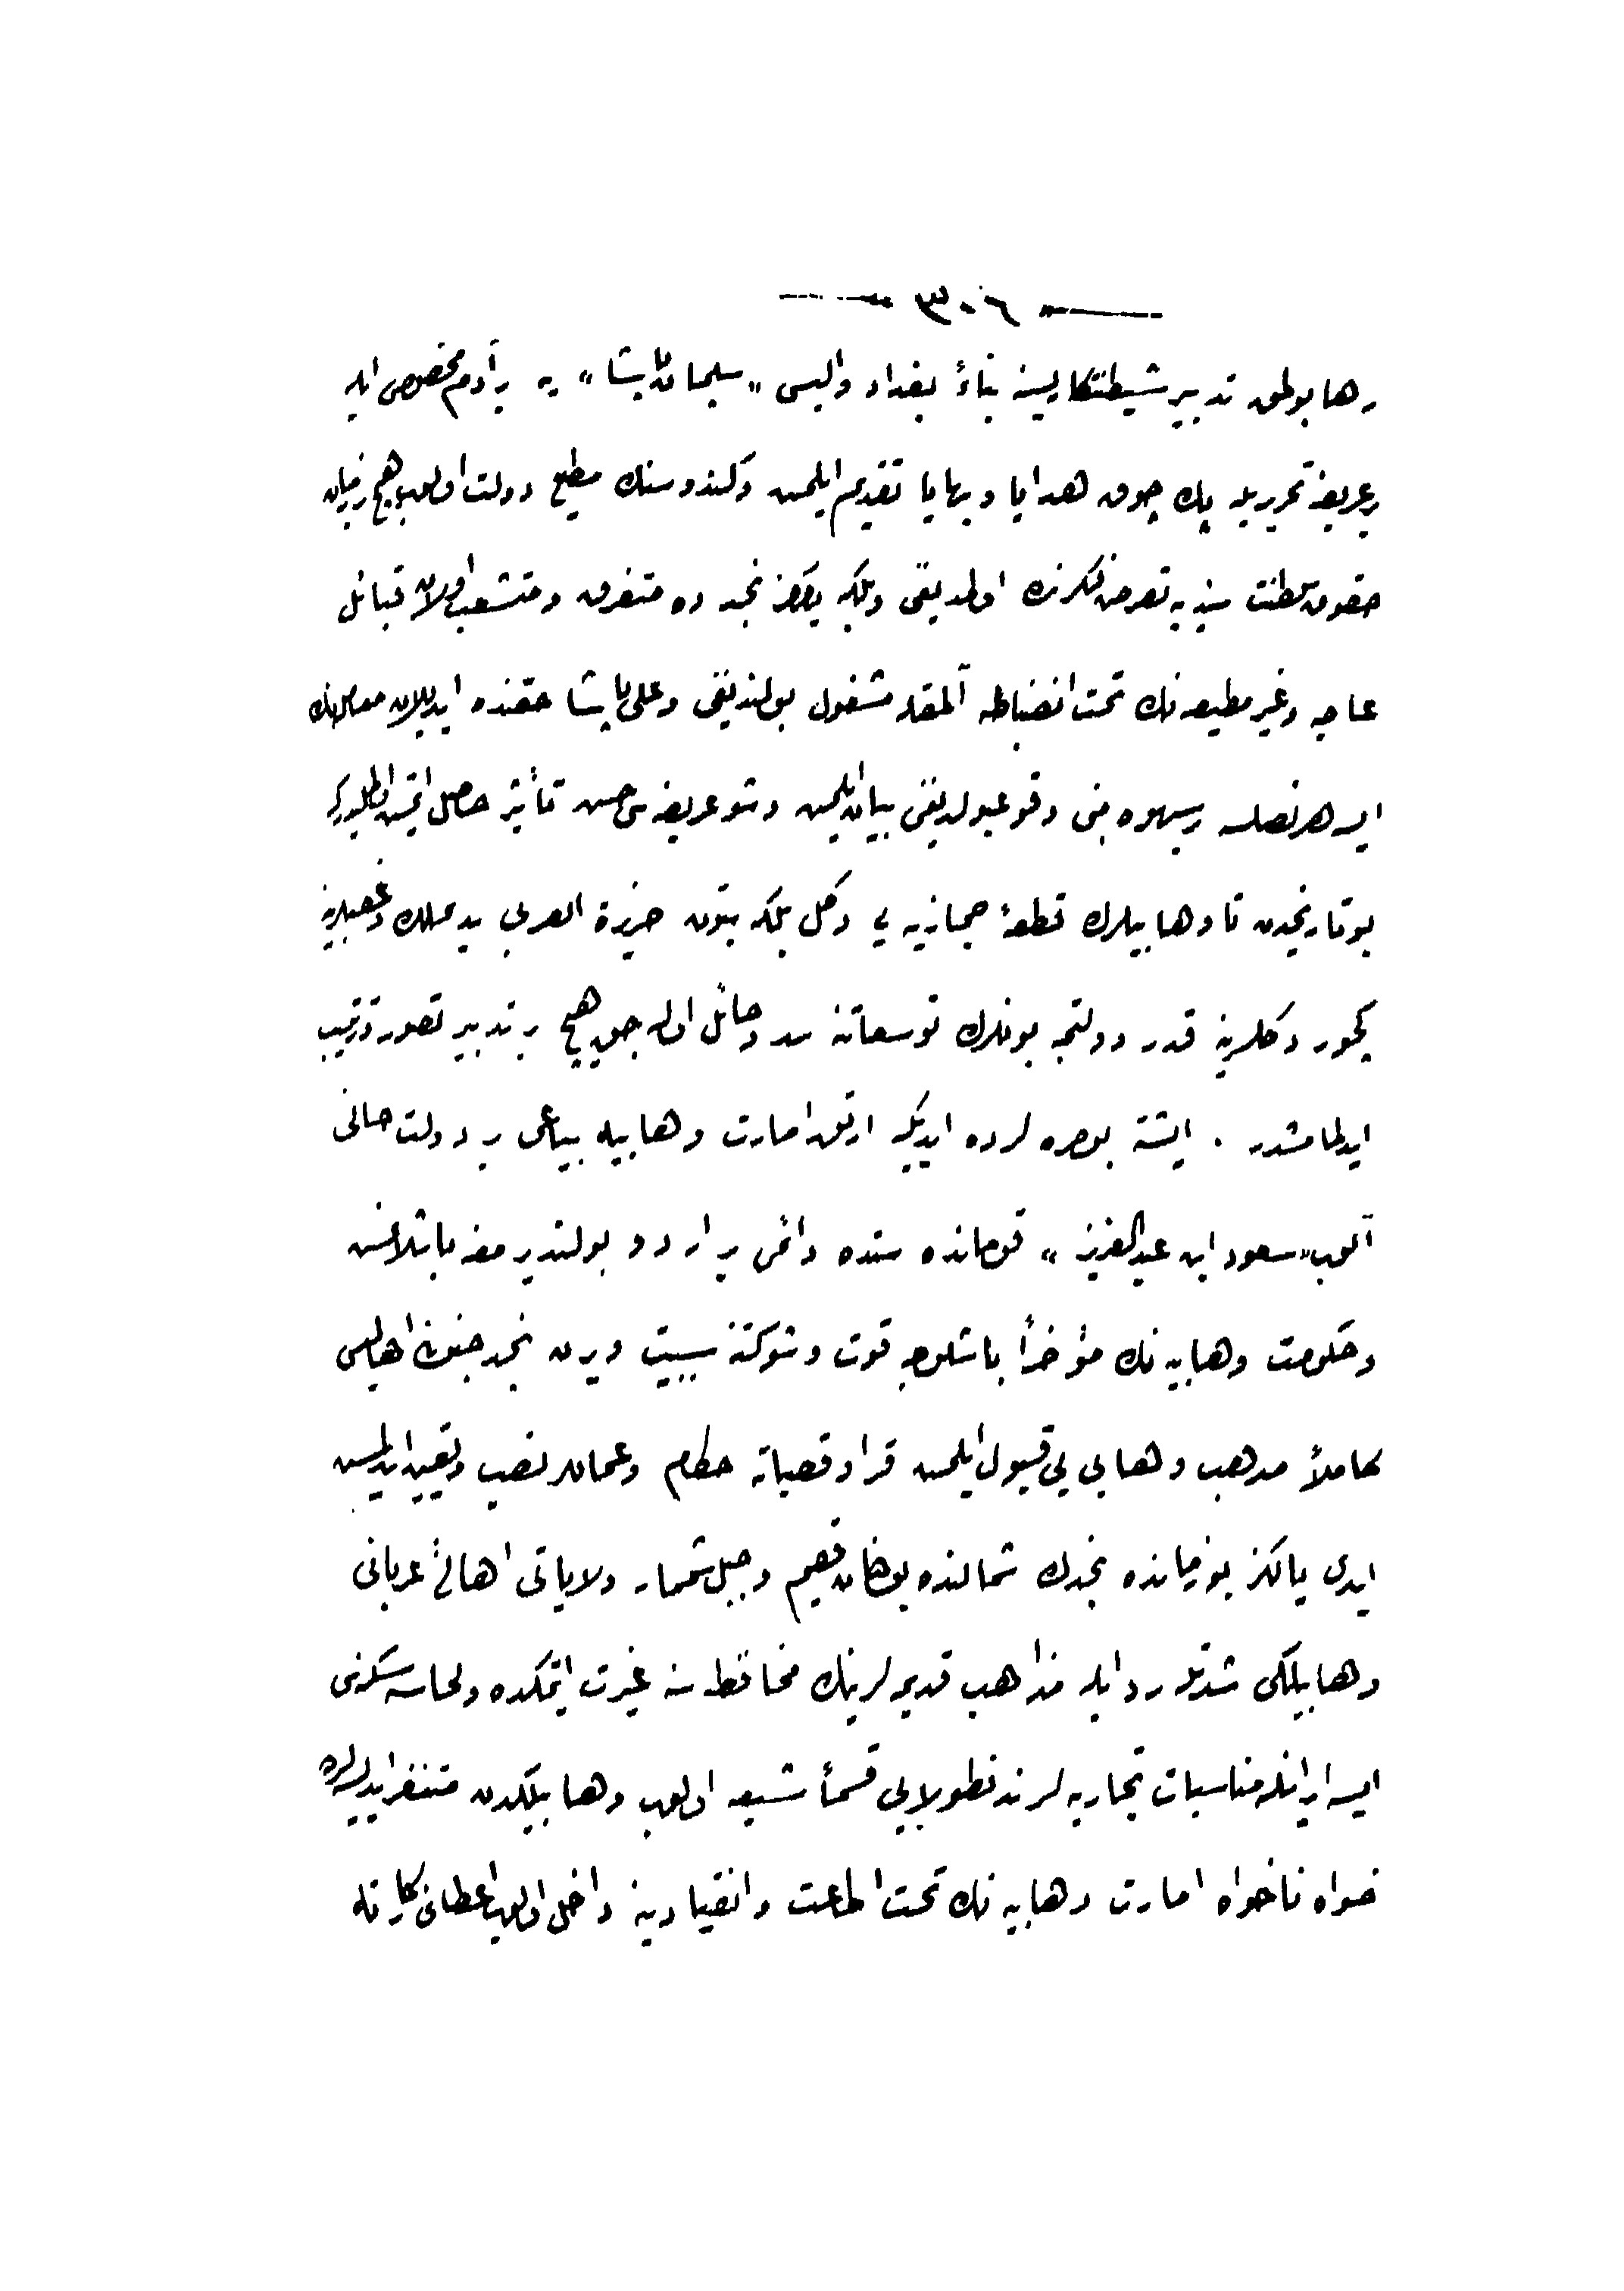 — ٣٠٦ —
رها بولمق تدبير شيطنتكاريسنه بناءً بغداد واليسى «سليمان پاشا» يه بر آدم مخصوص ايله
بر عريضه تحريريله پك چوق هدايا وبهايا تقديم ايلمس وكندوسنك مطيع دولت اولوب هيچ بر زمان
حقوق سلطنت سنيه يه تعرض فكرنده اولمديغنى وبلكه يالكز نجد ده متفرق ومتشعب اولان قبائل
عاصيه وغير مطيعه نك تحت انضباطه آلمقله مشغول بولنديغنى وعلى پاشا حقنده ايديلان معامله نك
ايسه هر نصلسه بر سهوه مبنى وقوعبولديغنى بيان ايلمس وشو عريضه سى حسن تأثير حاصل ايتمس
بو تاريخدن تا وهابيلرك قطعهٔ حجازيه يى دكل بلكه بتون جزيرة العربى يد تملك وغصبلرينه
كچوردكلرينه قدر دولتجه بونلرك توسعاتنه سد وحائل اوله جق هيچ بر تدبير تصور وترتيب
ايدلمامشدر . ايشته بو صره لرده ايديكه ارتق امارت وهابيه بياغى بر دولت حالنى
آلوب «سعود ابن عبد العزيز» قومانده سنده دائمى بر اردو بولنديرمغه باشلامس
وحكومت وهابيه نك مؤخراً باشلوجه قوت وشوكتنه سببيت ويرن نجد جنوبى اهاليسى
كاملاً مذهب وهابى يى قبول ايلمس قرا وقصباته حكام وعماللر نصب وتعيين ايدلمس
ايدى يالكز بو زمانده نجدك شمالنده بولنان قصيم وجبل شمار ولاياتى اهالئ عربانى
وهابيلكى شدتله رد ايله مذاهب قديمه لرينك محافظه سنه غيرت ايتمكده ولحاسه سكنه سى
ايسه ايرانله مناسبات تجاريه لرندن طولايى قسماً شيعه اولوب وهابيلكدن متنفر ايديلرسه ده
خواه ناخواه امارت وهابيه نك تحت اطاعت وانقيادينه داخل اولوب اعطاى